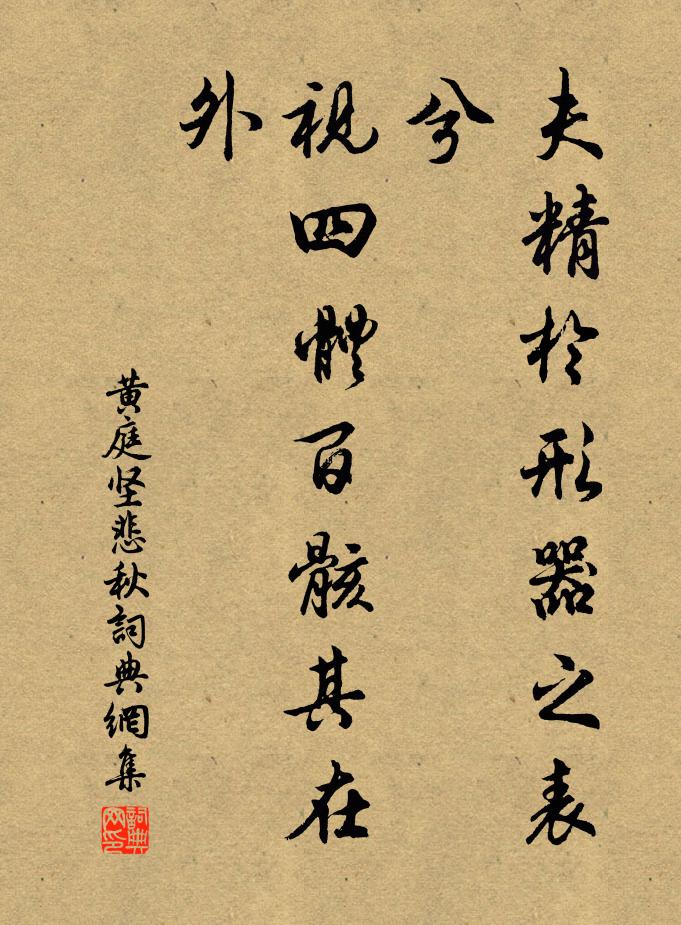 夫精於形器之表
兮
視四體百骸其在
外
黄庭坚悲秋詞典網集
詞典
网印